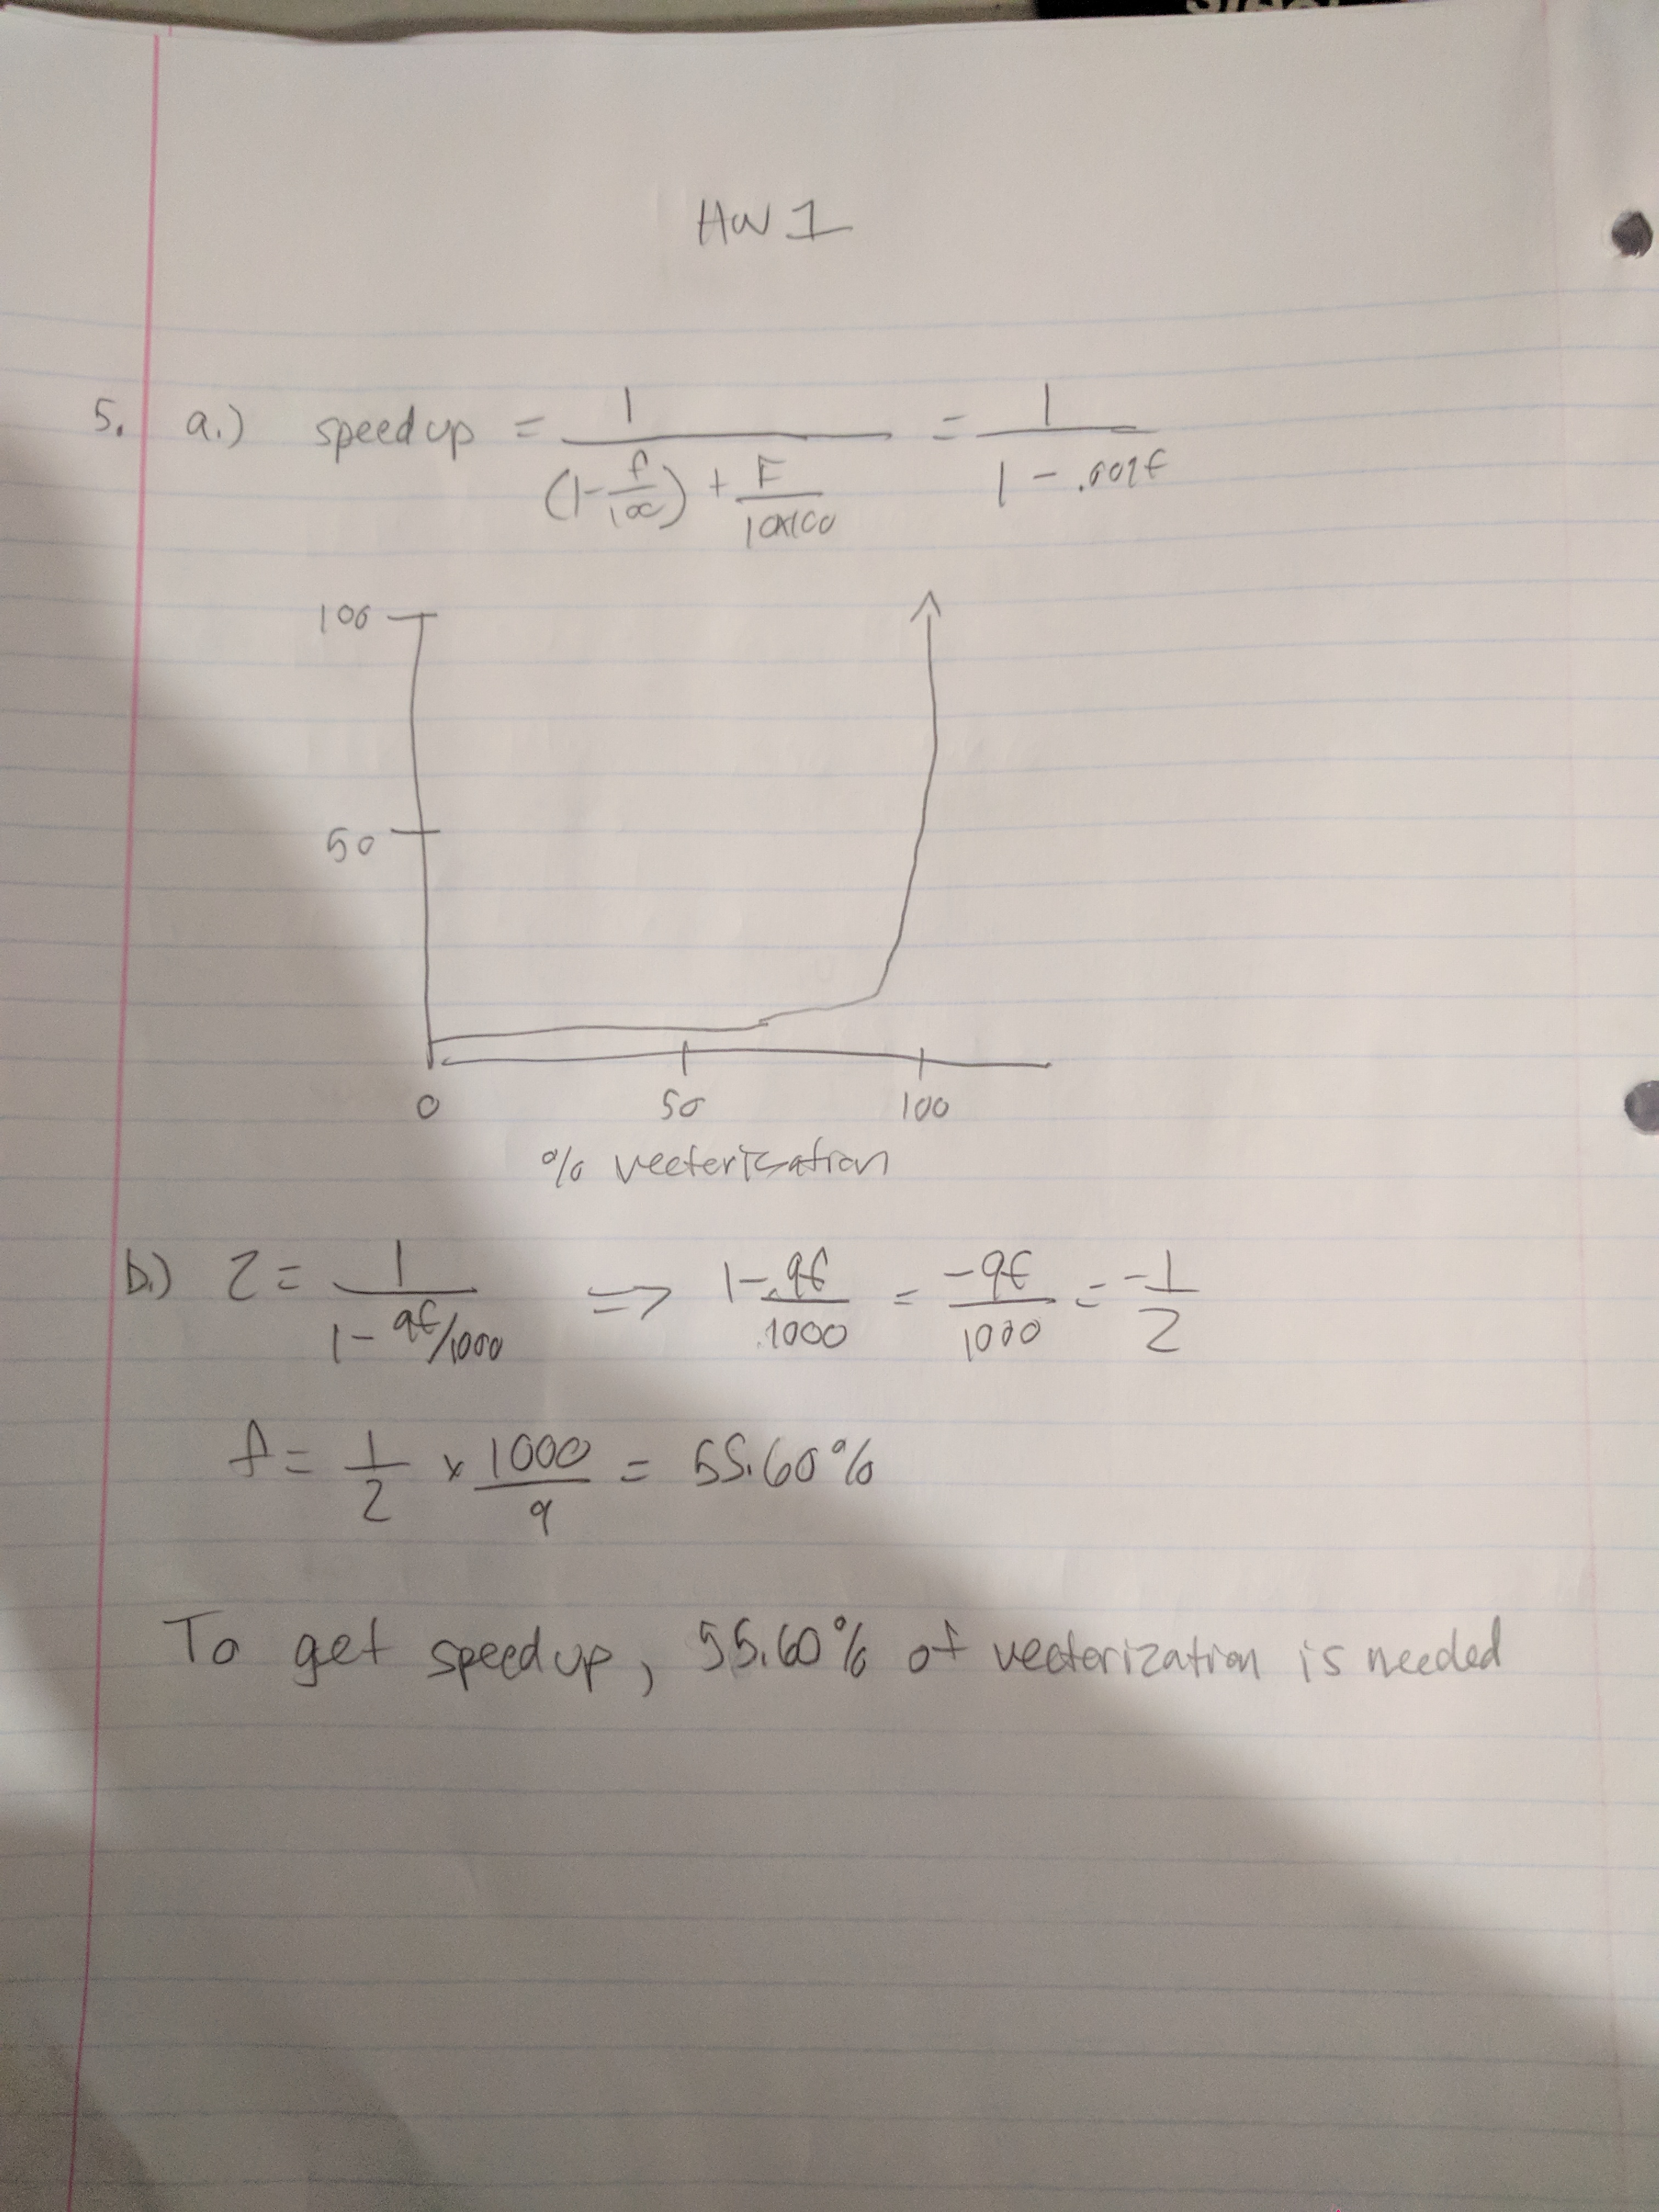 HW 1
5. a.) speedup = 1 / ((1 - f/100) + F/(10x100)) = 1 / (1 - .009f)
100
50
0 50 100
% vecterization
b.) 2 = 1 / (1 - 9f/1000) => 1 - 9f/1000 = -9f/1000 = -1/2
f = 1/2 x 1000/9 = 55.60%
To get speedup, 55.60% of vectorization is needed